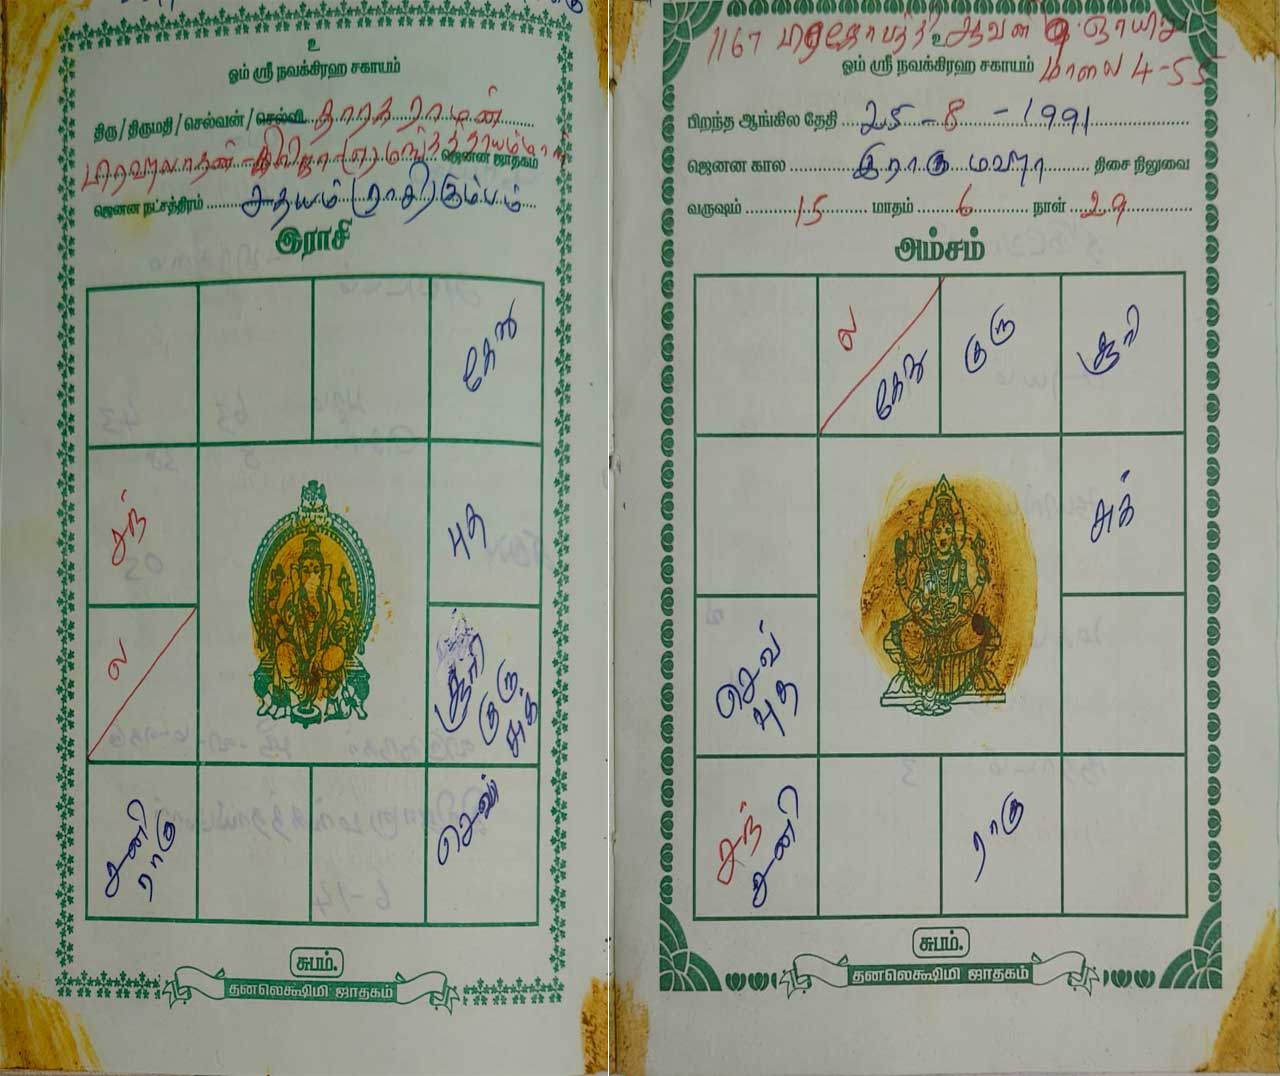 உ
ஓம் ஸ்ரீ நவக்கிரஹ சகாயம்
திரு / திருமதி / செல்வன் / செல்வி
ஜெனன ஜாதகம்
ஜெனன நட்சத்திரம் சதயம் ராசி கும்பம்
இராசி
கேது
சந்
புத
ல
சூரி
குரு
சுக்
சனி
ராகு
செவ்
சுபம்.
தனலெக்ஷ்மி ஜாதகம்
1167 ஆவணி ஞாயிறு
உ
ஓம் ஸ்ரீ நவக்கிரஹ சகாயம் மாலை 4-55
பிறந்த ஆங்கில தேதி 25-8-1991
ஜெனன கால இராகு மஹா திசை நிலுவை
வருஷம் 15 மாதம் 6 நாள் 29
அம்சம்
ல
கேது
குரு
சூரி
சுக்
செவ்
புத
சந்
சனி
ராகு
சுபம்.
தனலெக்ஷிமி ஜாதகம்